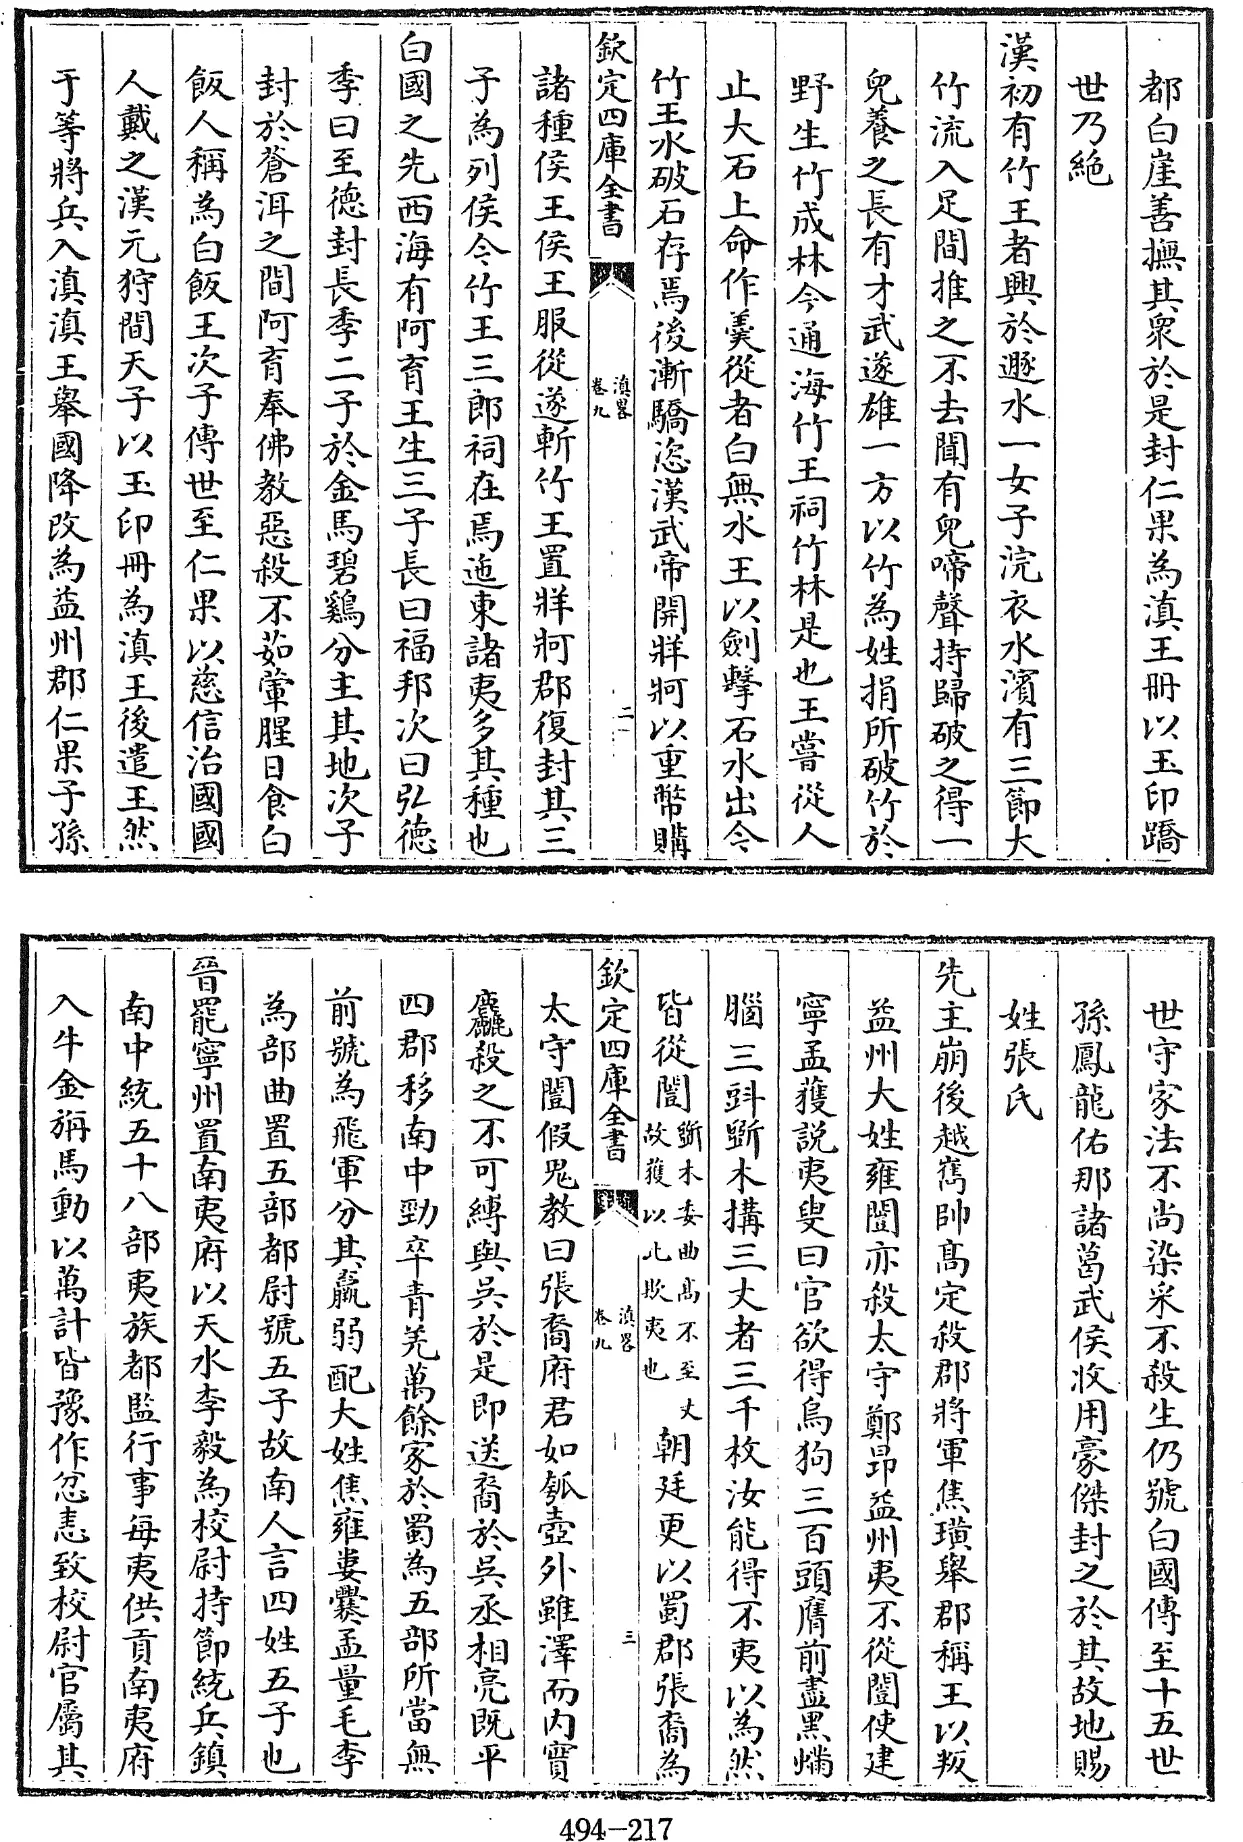 都白崖善撫其衆於是封仁果為滇王冊以玉印蹻
世乃絶
漢初有竹王者興於遯水一女子浣衣水濱有三節大
竹流入足間推之不去聞有兒啼聲持歸破之得一
兒養之長有才武遂雄一方以竹為姓捐所破竹於
野生竹成林今通海竹王祠竹林是也王嘗從人
止大石上命作羹從者白無水王以劍擊石水出今
竹王水破石存焉後漸驕恣漢武帝開牂牁以重幣購
欽定四庫全書
滇畧
卷九
二
諸種侯王侯王服從遂斬竹王置牂牁郡復封其三
子為列侯今竹王三郎祠在焉迤東諸夷多其種也
白國之先西海有阿育王生三子長曰福邦次曰弘德
季曰至德封長季二子於金馬碧鷄分主其地次子
封於蒼洱之間阿育奉佛教惡殺不茹葷腥日食白
飯人稱為白飯王次子傳世至仁果以慈信治國國
人戴之漢元狩間天子以玉印冊為滇王後遣王然
于等將兵入滇滇王舉國降改為益州郡仁果子孫
世守家法不尚染采不殺生仍號白國傳至十五世
孫鳳龍佑那諸葛武侯收用豪傑封之於其故地賜
姓張氏
先主崩後越嶲帥髙定殺郡將軍焦璜舉郡稱王以叛
益州大姓雍闓亦殺太守鄭昂益州夷不從闓使建
寧孟獲說夷叟曰官欲得烏狗三百頭膺前盡黒蟎
腦三㪷斲木搆三丈者三千枚汝能得不夷以為然
皆從闓斲木委曲髙不至丈故獲以此欺夷也朝廷更以蜀郡張裔為
欽定四庫全書
滇畧
卷九
三
太守闓假鬼教曰張裔府君如瓠壺外雖澤而内實
麤殺之不可縛與吳於是即送裔於吳丞相亮既平
四郡移南中勁卒青羌萬餘家於蜀為五部所當無
前號為飛軍分其羸弱配大姓焦雍婁爨孟量毛李
為部曲置五部都尉號五子故南人言四姓五子也
晉罷寧州置南夷府以天水李毅為校尉持節統兵鎮
南中統五十八部夷族都監行事每夷供貢南夷府
入牛金旃馬動以萬計皆豫作忿恚致校尉官屬其
494-217